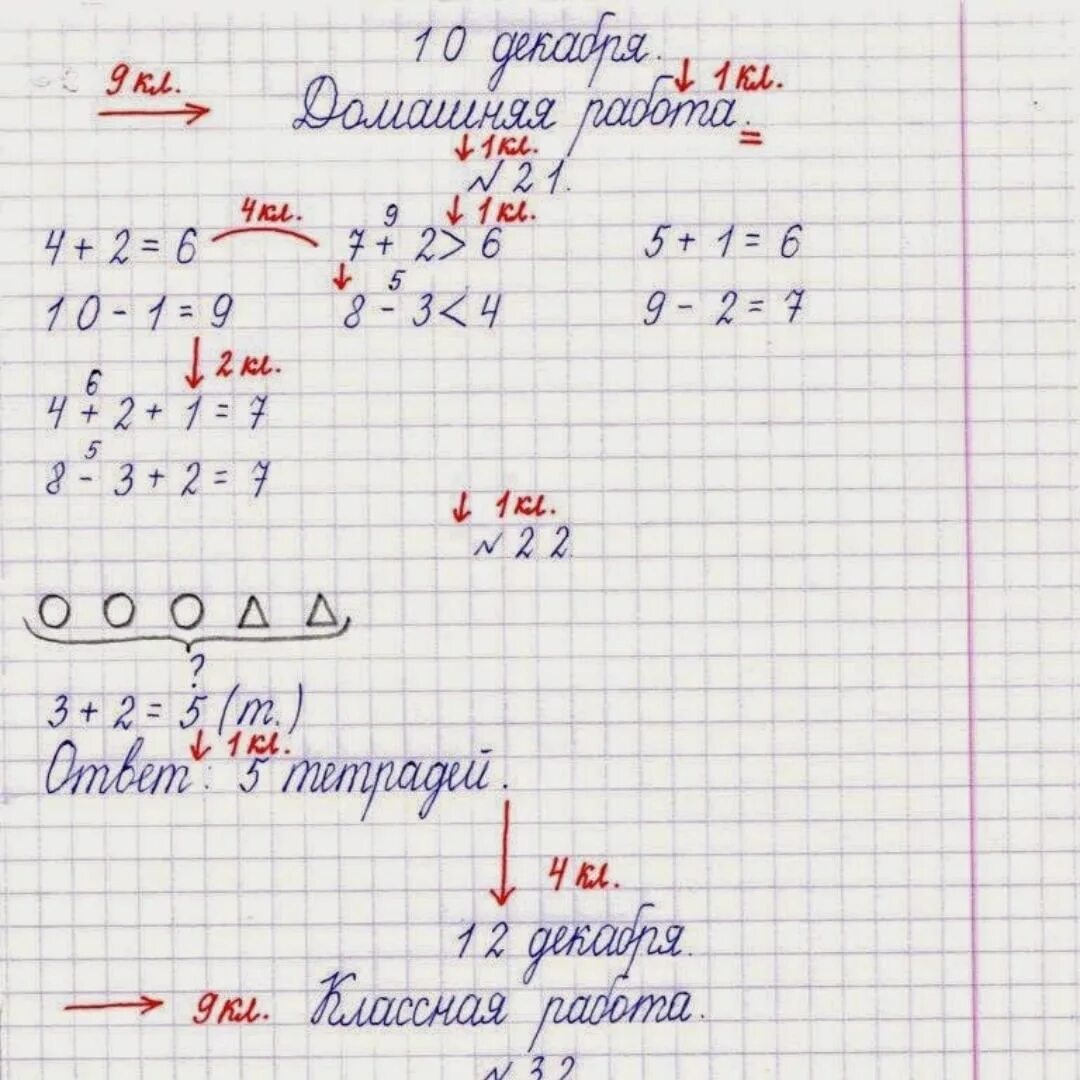 10 декабря.
9 кл. Домашняя работа. 1 кл.
1 кл.
№ 21.
4 кл. 9 1 кл.
4 + 2 = 6 7 + 2 > 6 5 + 1 = 6
5
10 - 1 = 9 8 - 3 < 4 9 - 2 = 7
2 кл.
6
4 + 2 + 1 = 7
5
8 - 3 + 2 = 7
1 кл.
№ 22.
?
3 + 2 = 5 (т.)
1 кл.
Ответ: 5 тетрадей.
4 кл.
12 декабря.
9 кл. Классная работа.
№ 32